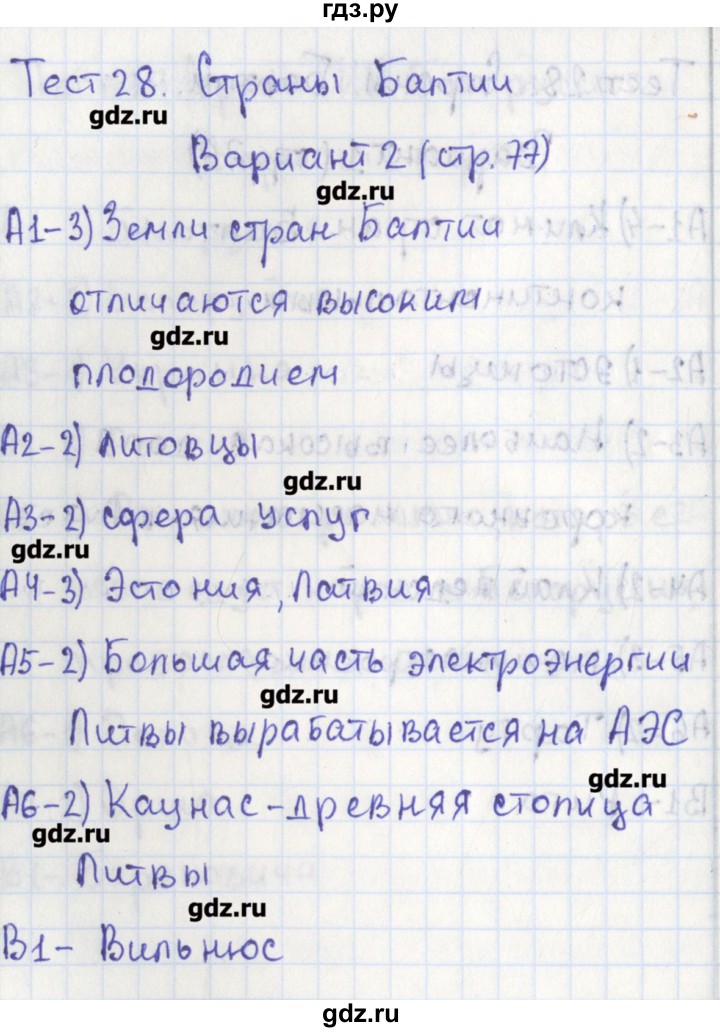 гдз.ру
Тест 28. Страны Балтии
gdz.ru
Вариант 2 (стр. 77)
gdz.ru
А1-3) Земли стран Балтии
отличаются высоким
gdz.ru
плодородием
А2-2) литовцы
gdz.ru
А3-2) сфера услуг
gdz.ru
А4-3) Эстония, Латвия
А5-2) Большая часть электроэнергии
gdz.ru
Литвы вырабатывается на АЭС
gdz.ru
А6-2) Каунас - древняя столица
gdz.ru
Литвы
gdz.ru
В1 - Вильнюс
gdz.ru